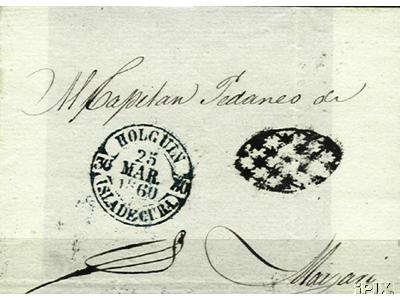 Al Capitan Pedaneo de
HOLGUIN
25
MAR.
1860
ISLA DE CUBA
iPIX